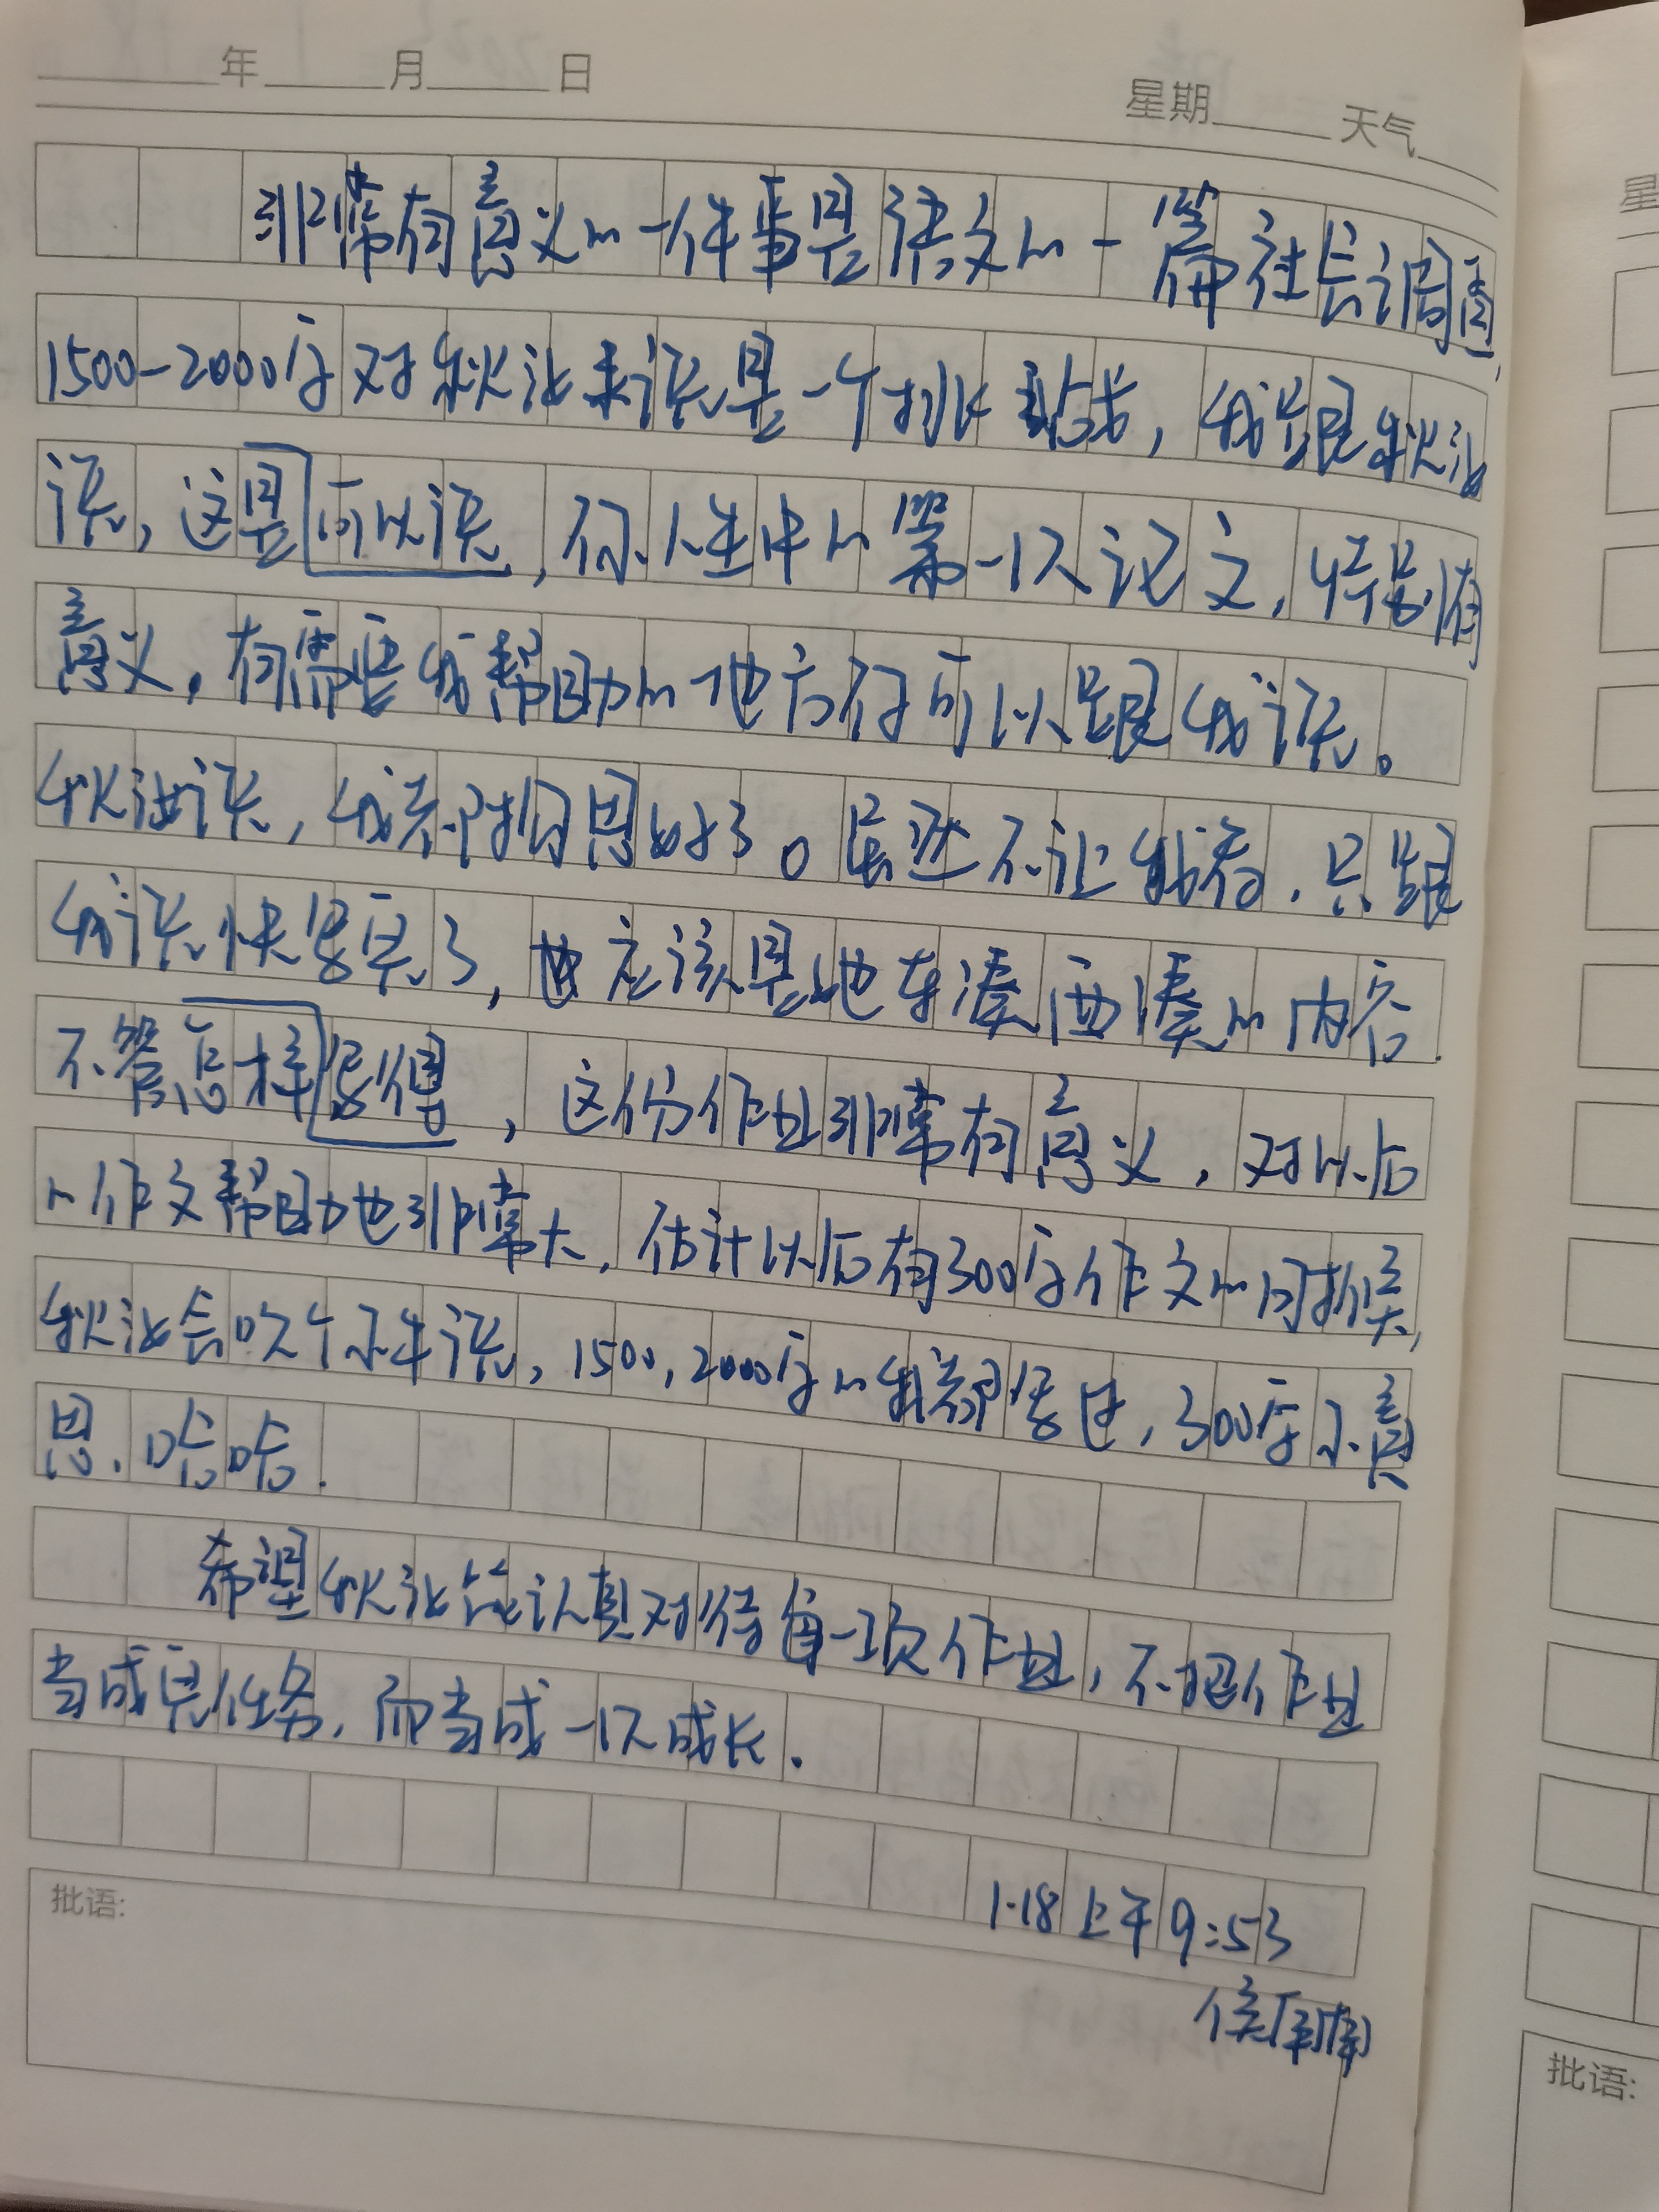 年 月 日 星期 天气
非常有意义的一件事是语文的一篇社会调查,
1500-2000字对秋池来说是一个挑战,我跟秋池
说,这是可以说,你人生中的第一次论文,特别有
意义,有需要我帮助的地方你可以跟我说。
秋池说,我素材构思好了。虽然不让我看,只跟
我说快写完了,也应该是她东凑西凑的内容.
不管怎样写得,这份作业非常有意义,对以后
的作文帮助也非常大,估计以后有300字作文的时候,
秋池会吹个小牛说,1500,2000字的我都写过,300字小意
思.哈哈.
希望秋池能认真对待每一项作业,不把作业
当成完任务,而当成一次成长.
1.18上午9:53
批语:
星
批语: